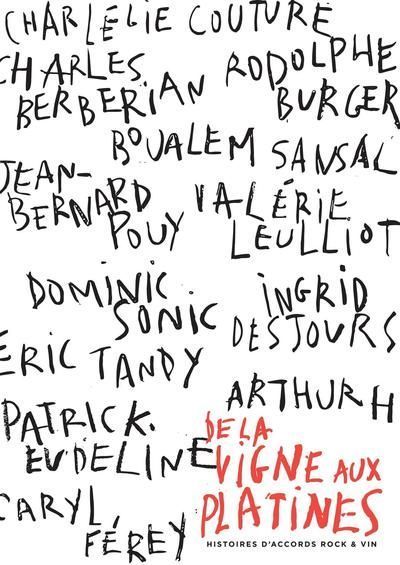 CHARLÉLIE COUTURE
CHARLES
BERBERIAN
RODOLPHE
BURGER
BOUALEM SANSAL
JEAN-
BERNARD
POUY
VALÉRIE
LEULLIOT
DOMINIC
SONIC
INGRID
DESJOURS
ERIC TANDY
ARTHUR H
PATRICK
EUDELINE
DE LA
VIGNE AUX
PLATINES
HISTOIRES D'ACCORDS ROCK & VIN
CARYL
FÉREY